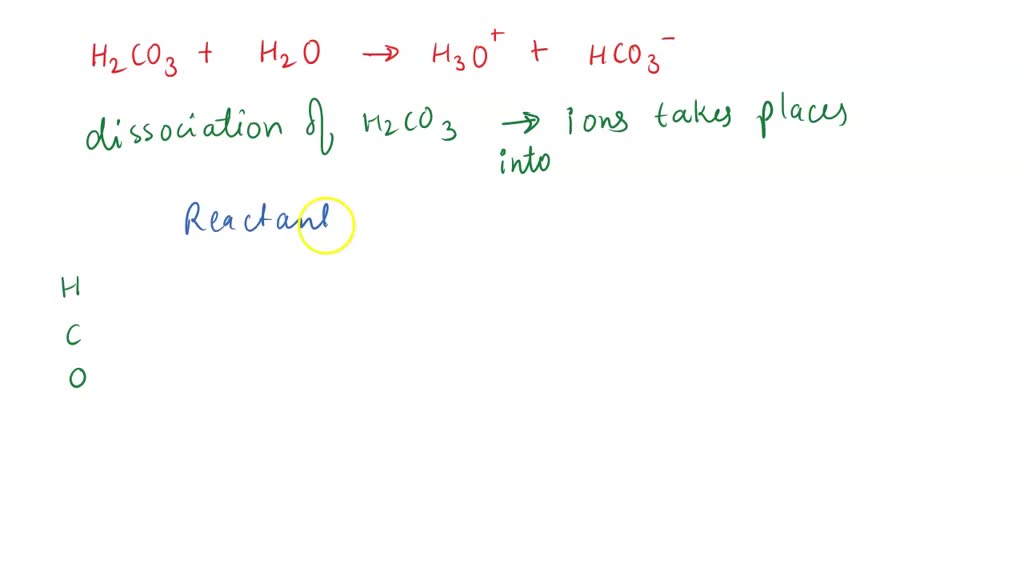 H₂CO₃ + H₂O → H₃O⁺ + HCO₃⁻
dissociation of H₂CO₃ → ions takes places
into
Reactant
H
C
O